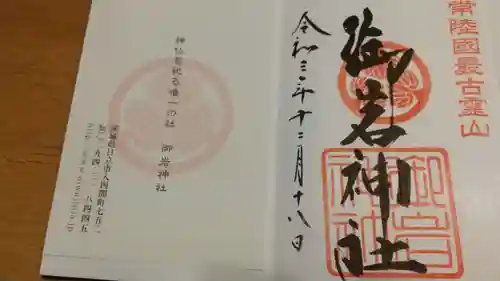 常陸國最古霊山
御岩神社
御岩神社
令和三年十二月十八日
神仏を祀る唯一の社 御岩神社
茨城県日立市入四間町七五二